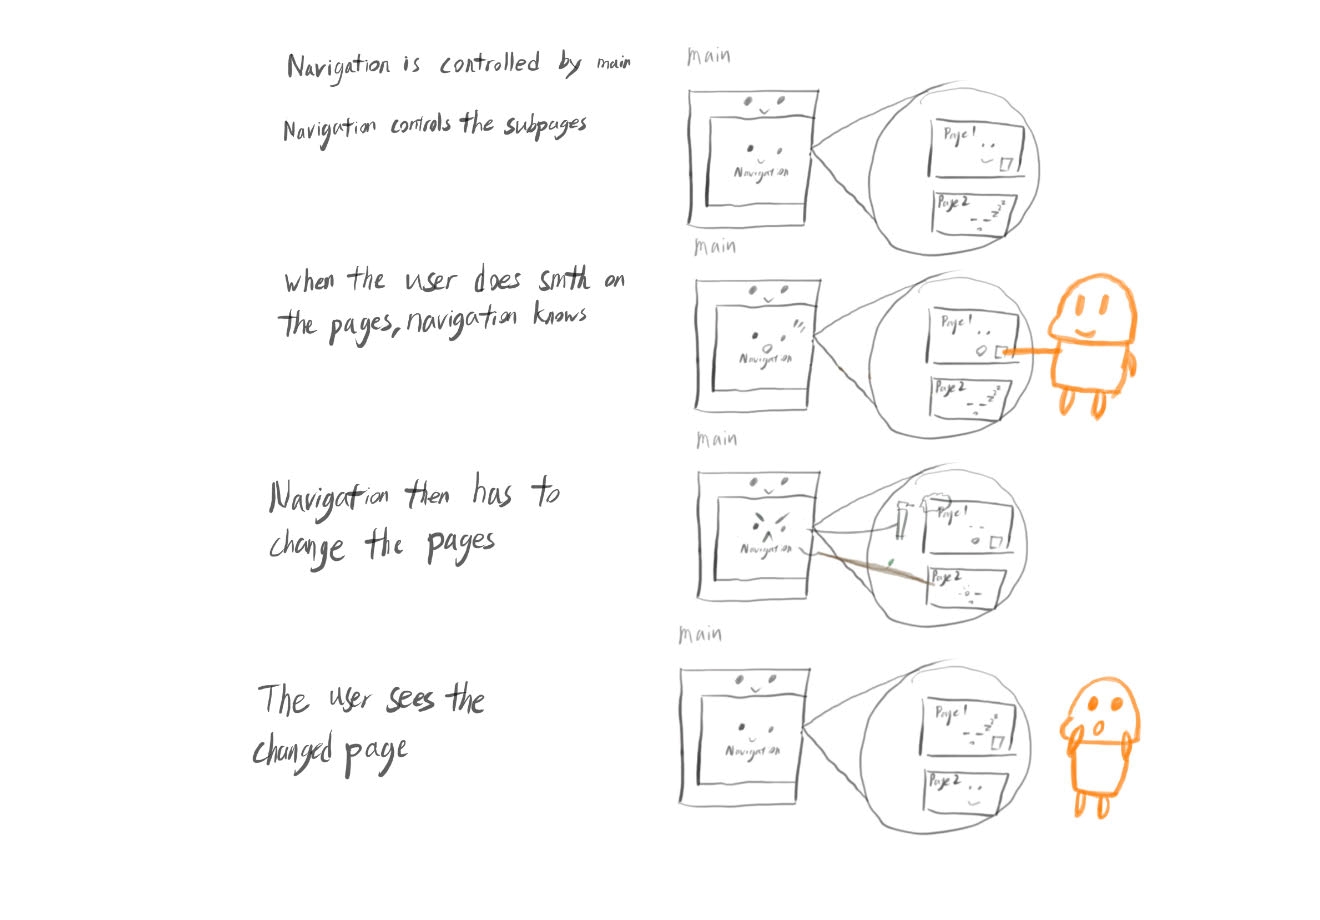 Navigation is controlled by main
Navigation controls the subpages
main
Navigation
Page 1
Page 2
zzz
when the user does smth on
the pages, navigation knows
main
Navigation
Page 1
Page 2
zzz
Navigation then has to
change the pages
main
Navigation
Page 1
Page 2
The user sees the
changed page
main
Navigation
Page 1
zzz
Page 2